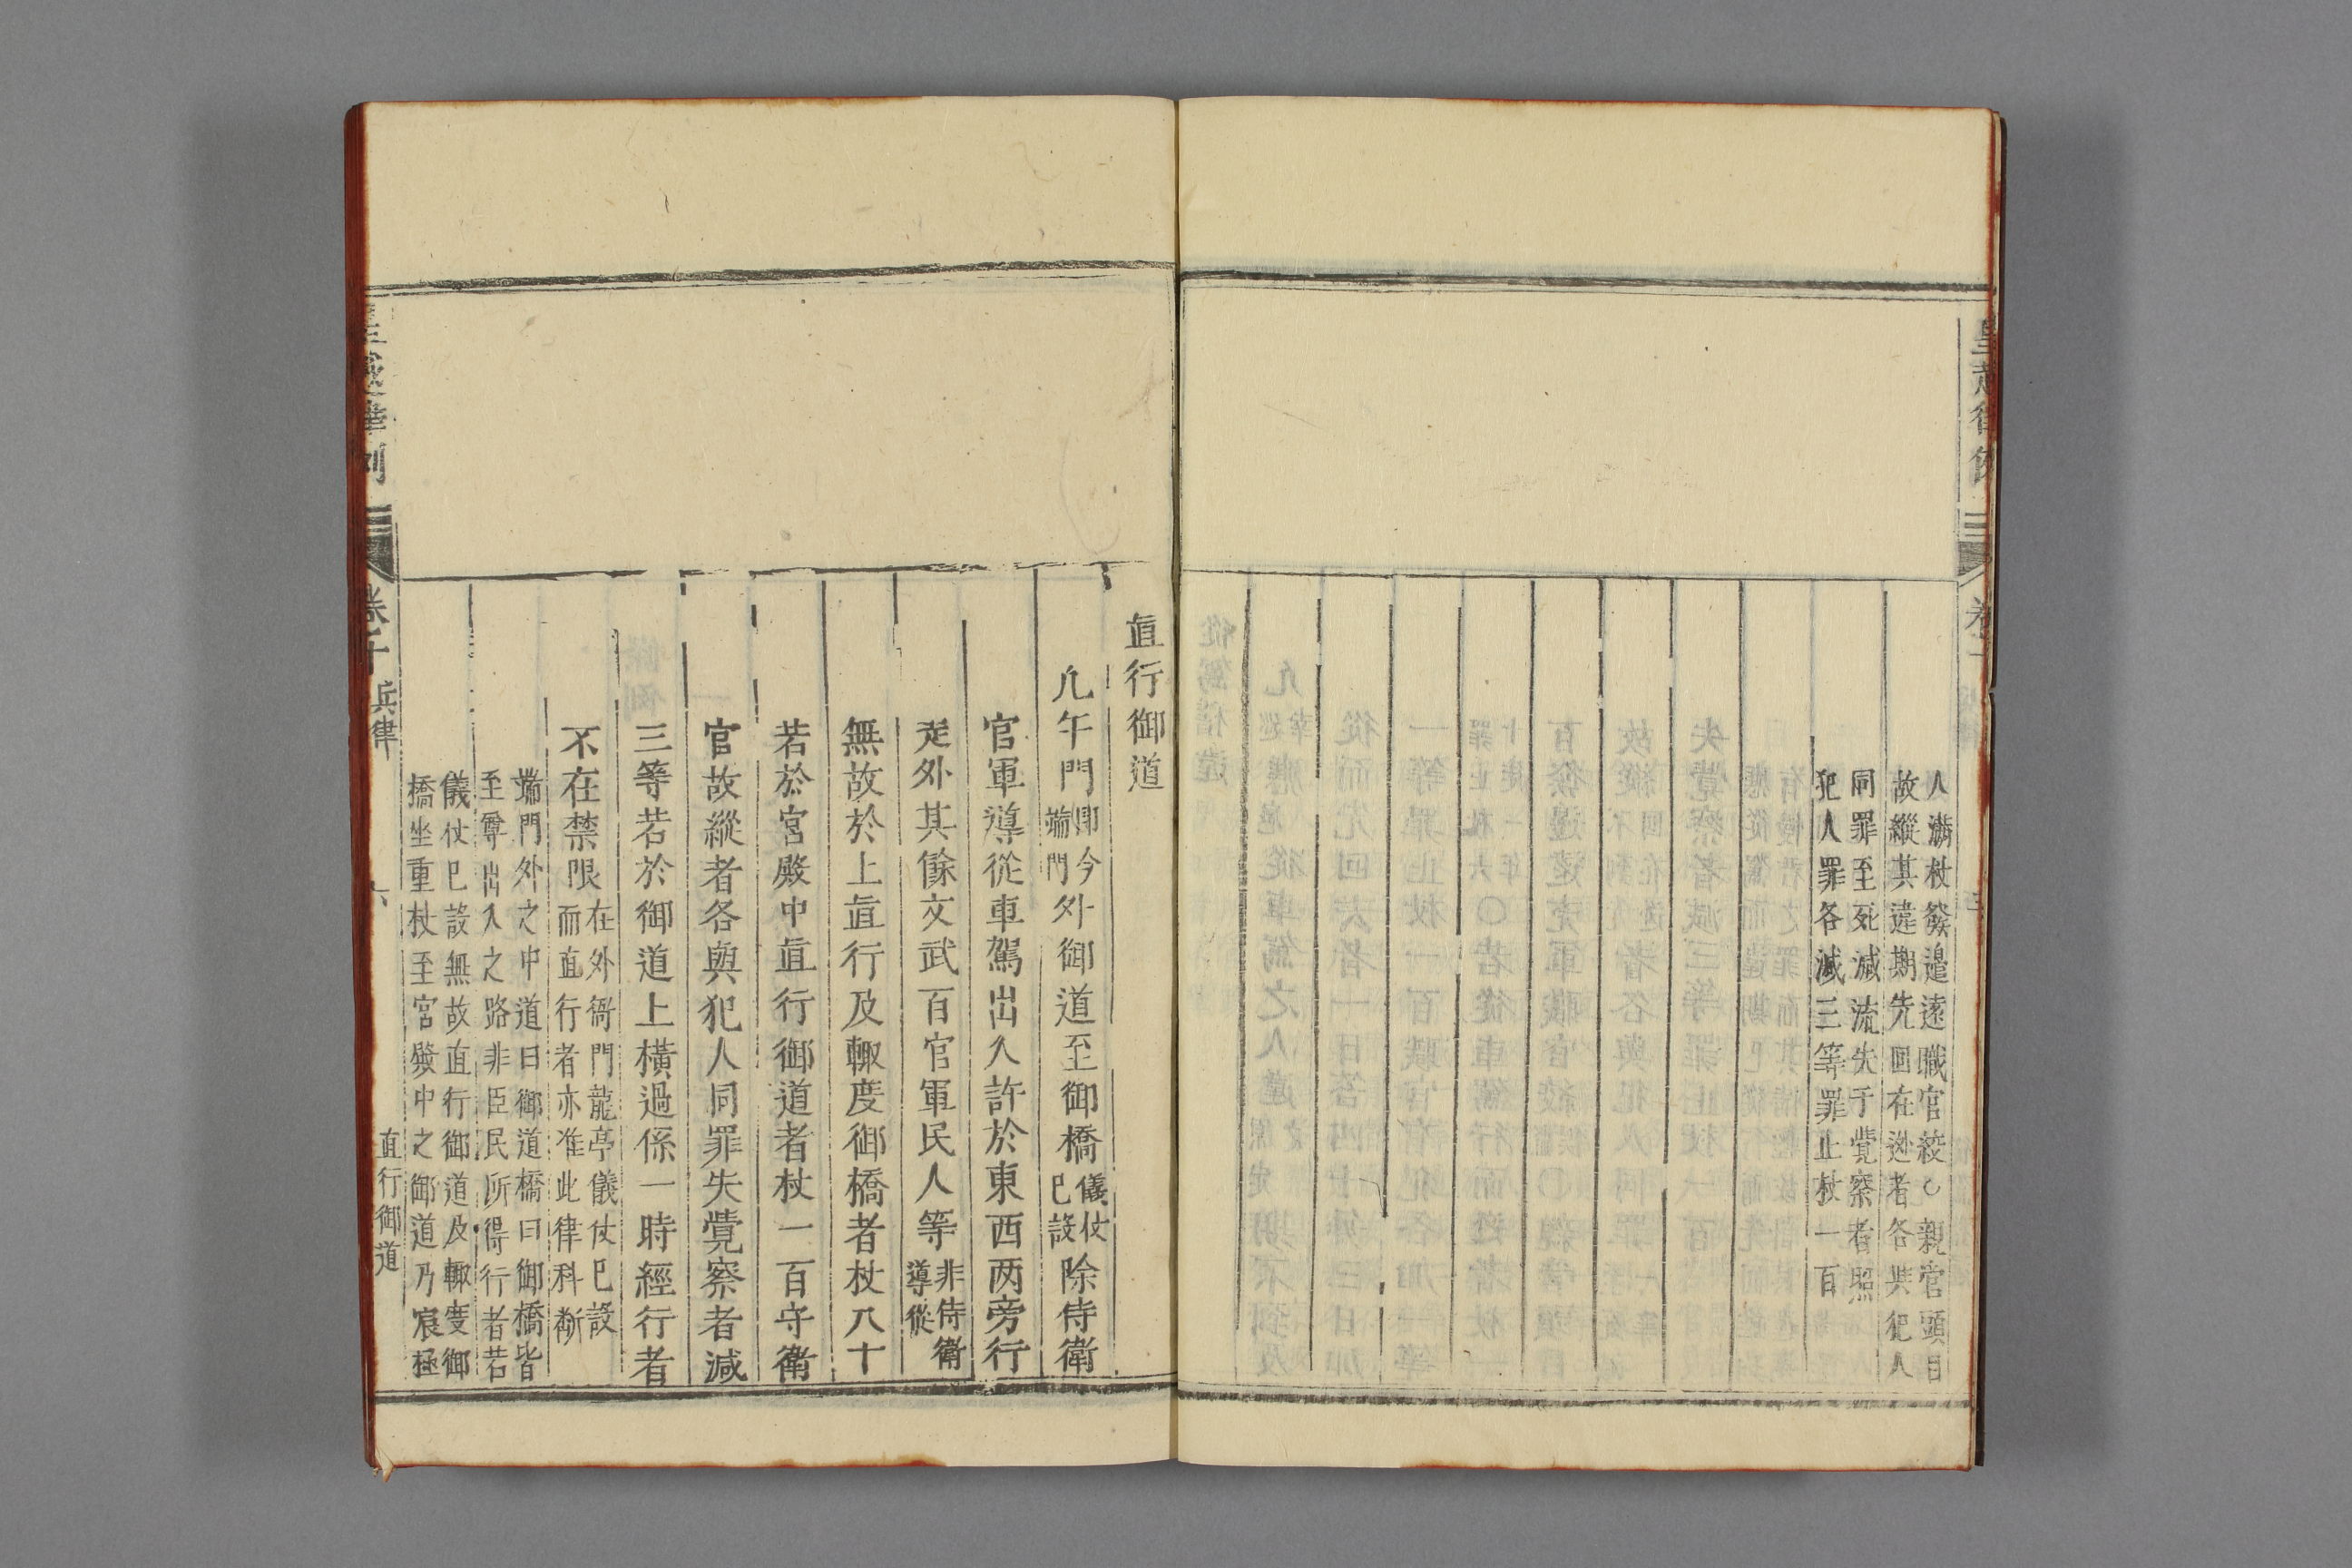 人滿杖發邊遠職官絞〇親管頭目
故縱其違期先回在逃者各與犯人
同罪至死減流失于覺察者照
犯人罪各減三等罪止杖一百
直行御道
凢午門即今端門外御道至御橋儀仗已設除侍衛
官軍導從車駕出入許於東西两旁行
走外其餘文武百官軍民人等非侍衛導從
無故於上直行及輙度御橋者杖八十
若於宮殿中直行御道者杖一百守衛
官故縱者各與犯人同罪失覺察者減
三等若於御道上橫過係一時經行者
不在禁限在外衙門龍亭儀仗已設而直行者亦准此律科斷
端門外之中道曰御道橋曰御橋皆
至尊出入之路非臣民所得行者若
儀仗已設無故直行御道及輙度御
橋坐重杖至宮殿中之御道乃宸極
卷十 兵律 六 直行御道